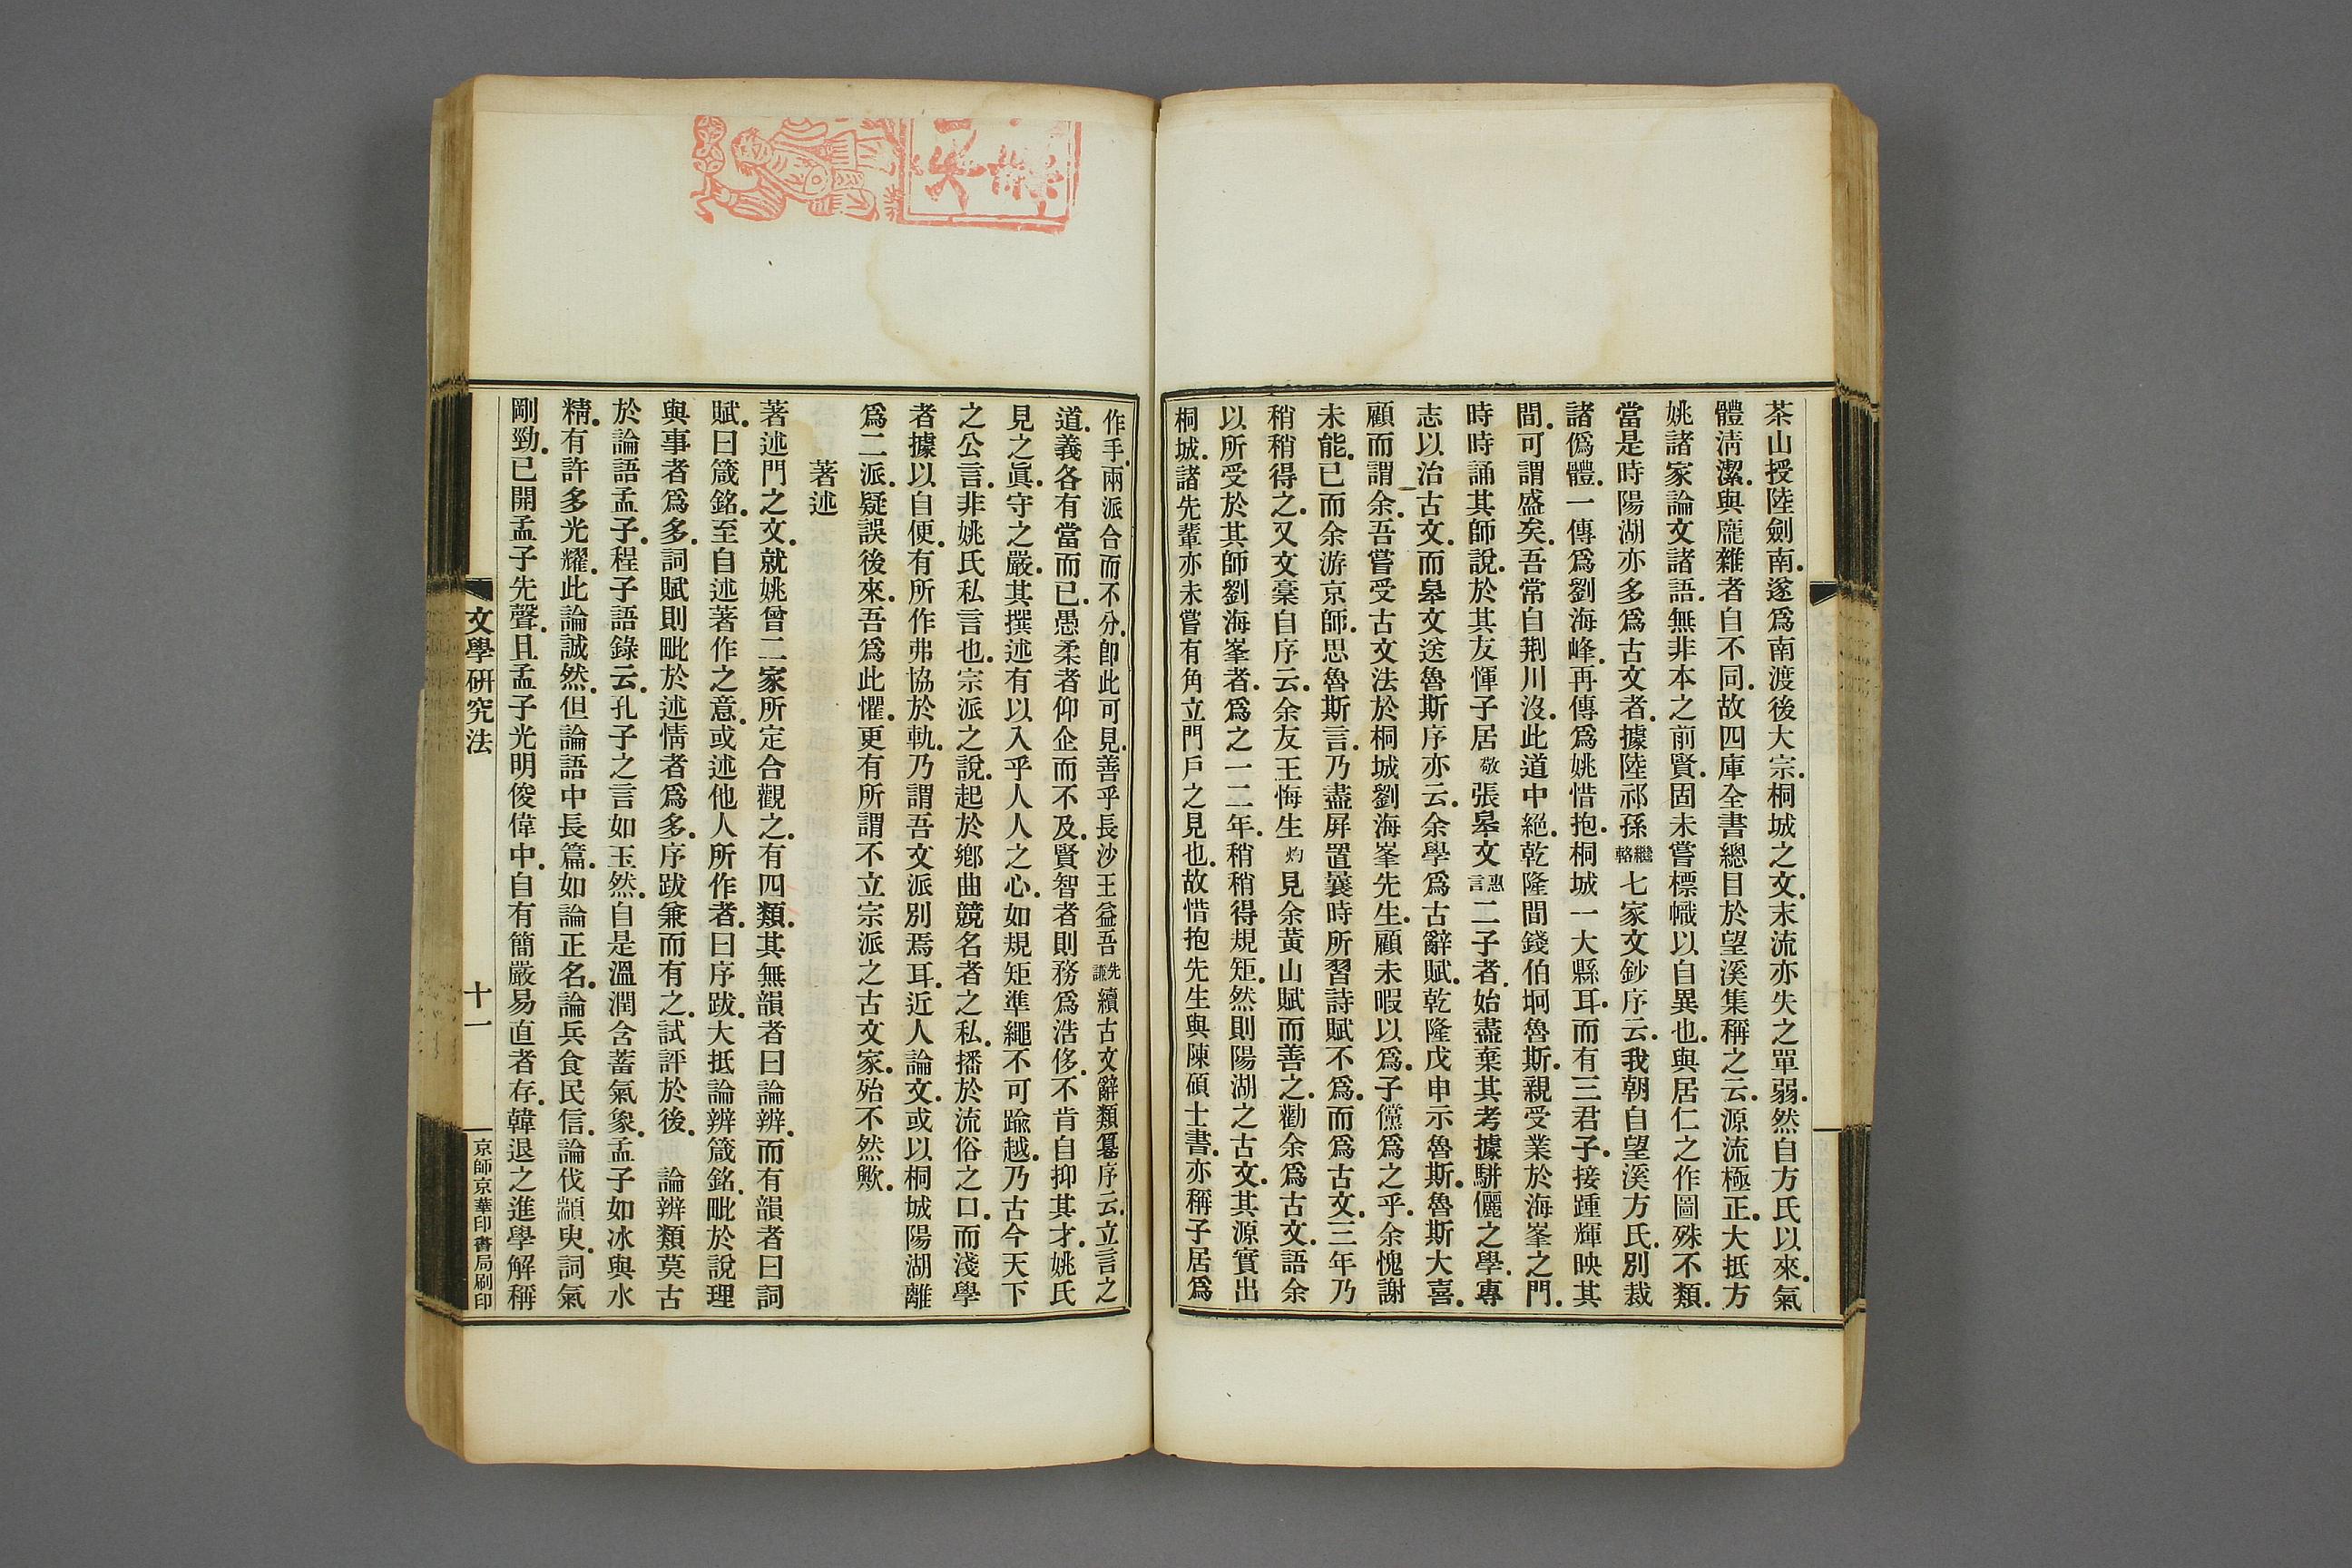 茶山授陸劍南。遂爲南渡後大宗。桐城之文。末流亦失之單弱。然自方氏以來。氣
體淸潔。與龐雜者自不同。故四庫全書總目於望溪集稱之云。源流極正。大抵方
姚諸家論文諸語。無非本之前賢。固未嘗標幟以自異也。與居仁之作圖殊不類。
當是時陽湖亦多爲古文者。據陸祁孫繼輅七家文鈔序云。我朝自望溪方氏。別裁
諸僞體。一傳爲劉海峰。再傳爲姚惜抱。桐城一大縣耳。而有三君子。接踵輝映其
間。可謂盛矣。吾常自荆川沒。此道中絕。乾隆間錢伯坰魯斯。親受業於海峯之門。
時時誦其師說。於其友惲子居敬張皋文惠言二子者。始盡棄其考據駢儷之學。專
志以治古文。而皋文送魯斯序亦云。余學爲古辭賦。乾隆戊申示魯斯。魯斯大喜。
顧而謂余。吾嘗受古文法於桐城劉海峯先生。顧未暇以爲。子儻爲之乎。余愧謝
未能。已而余游京師。思魯斯言。乃盡屛置曩時所習詩賦不爲。而爲古文。三年乃
稍稍得之。又文稾自序云。余友王悔生灼見余黃山賦而善之。勸余爲古文。語余
以所受於其師劉海峯者。爲之一二年。稍稍得規矩。然則陽湖之古文。其源實出
桐城。諸先輩亦未嘗有角立門戶之見也。故惜抱先生與陳碩士書。亦稱子居爲
作手。兩派合而不分。卽此可見。善乎長沙王益吾先謙續古文辭類纂序云。立言之
道。義各有當而已。愚柔者仰企而不及。賢智者則務爲浩侈。不肯自抑其才。姚氏
見之眞。守之嚴。其撰述有以入乎人人之心。如規矩準繩不可踰越。乃古今天下
之公言。非姚氏私言也。宗派之說。起於鄕曲競名者之私。播於流俗之口。而淺學
者據以自便。有所作弗協於軌。乃謂吾文派別焉耳。近人論文。或以桐城陽湖離
爲二派。疑誤後來。吾爲此懼。更有所謂不立宗派之古文家。殆不然歟。
著述
著述門之文。就姚曾二家所定合觀之。有四類。其無韻者曰論辨。而有韻者曰詞
賦。曰箴銘。至自述著作之意。或述他人所作者。曰序跋。大抵論辨箴銘。毗於說理
與事者爲多。詞賦則毗於述情者爲多。序跋兼而有之。試評於後。　論辨類莫古
於論語孟子。程子語錄云。孔子之言如玉然。自是溫潤含蓄氣象。孟子如冰與水
精。有許多光耀。此論誠然。但論語中長篇。如論正名。論兵食民信。論伐顓臾。詞氣
剛勁。已開孟子先聲。且孟子光明俊偉中。自有簡嚴易直者存。韓退之進學解稱
文學研究法
十一
京師京華印書局刷印